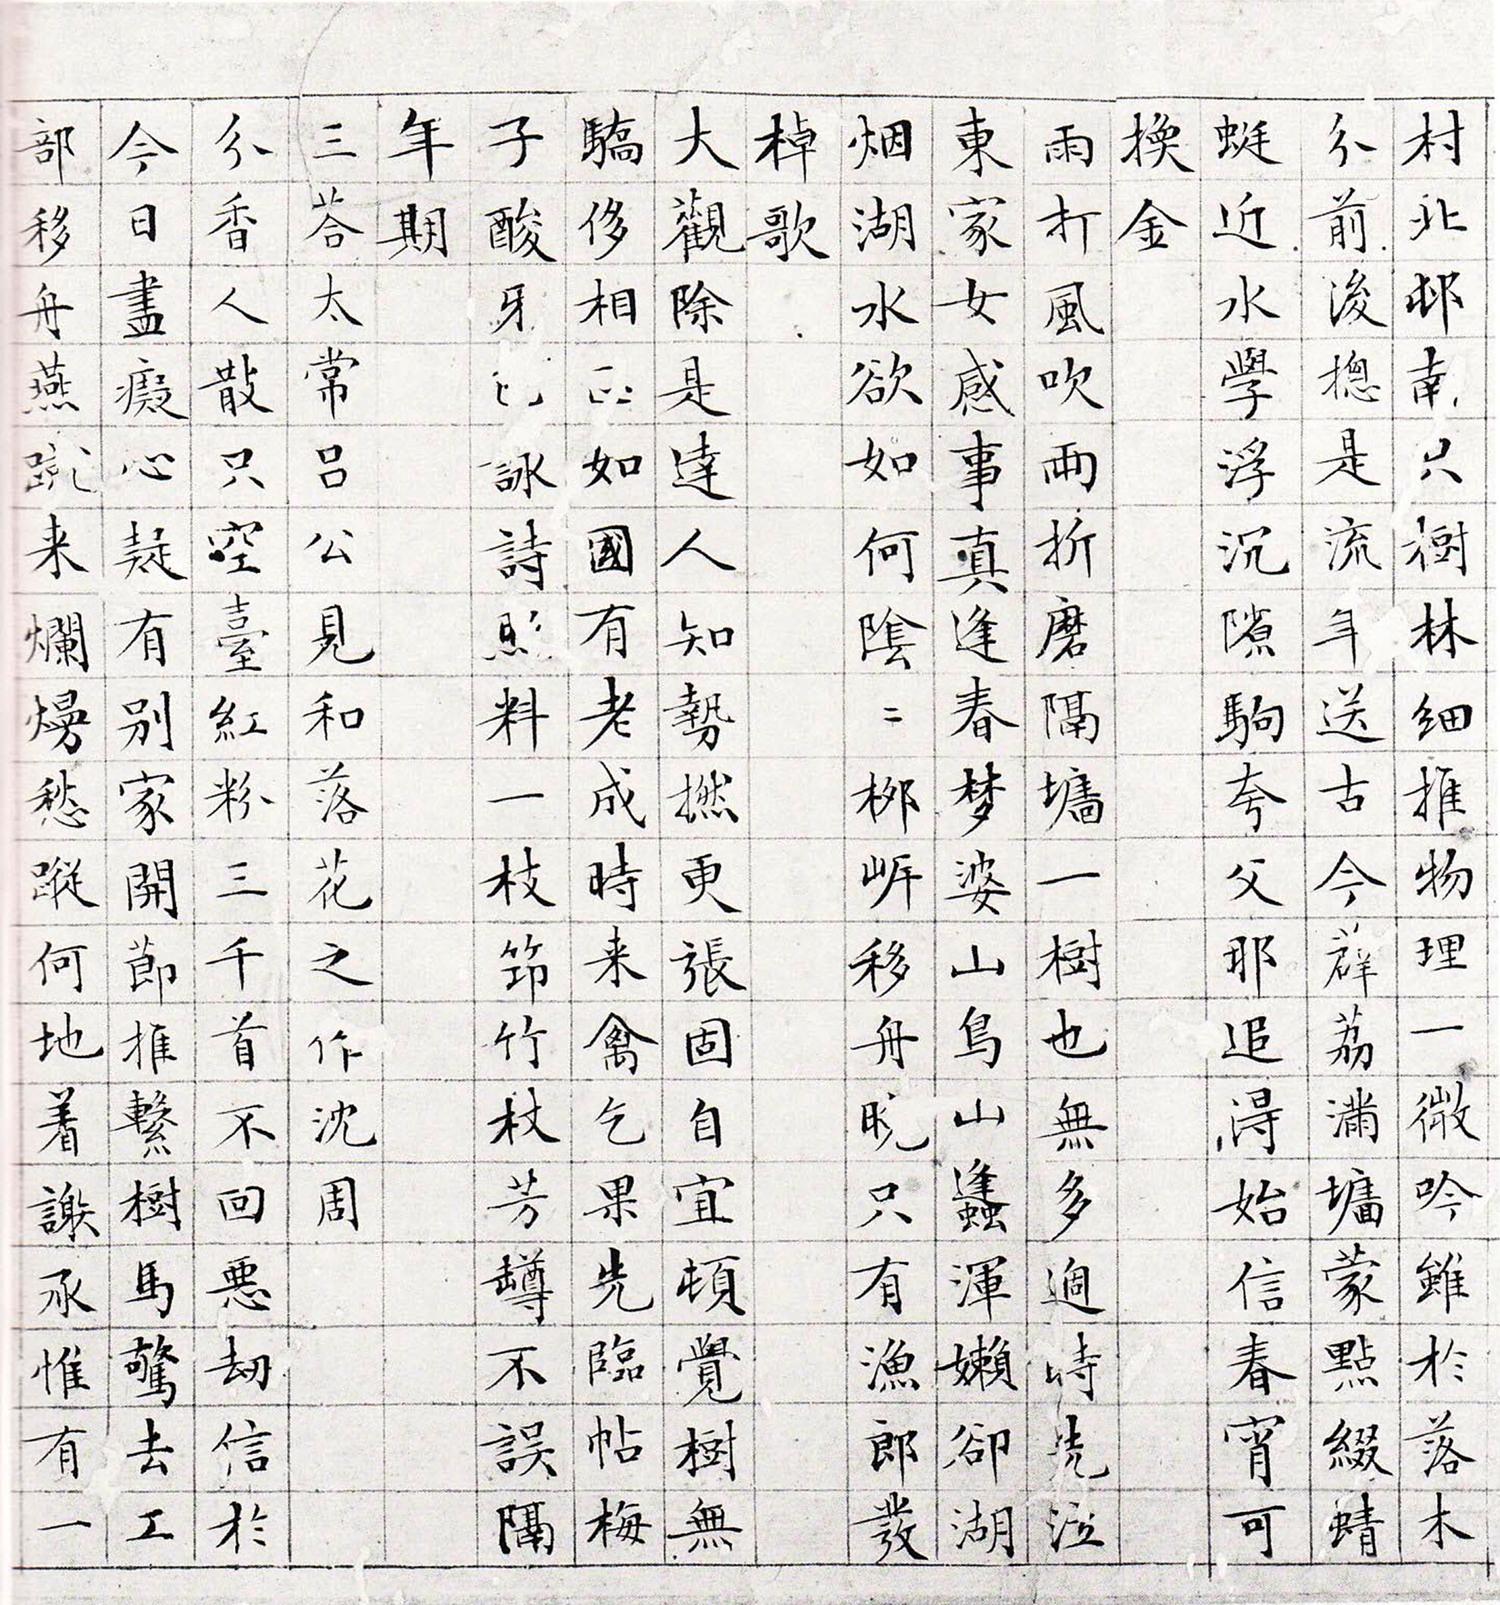 村北邨南只樹林細推物理一微吟雖於落木
分前後揔是流年送古今薜荔滿墉蒙點綴蜻
蜓近水學浮沉隙駒夸父那追得始信春宵可
換金
雨打風吹雨折磨隔墉一樹也無多過時先泣
東家女感事真逢春梦婆山鳥山蠭渾嬾卻湖
烟湖水欲如何陰〻桞岍移舟晚只有漁郎發
棹歌
大觀除是達人知勢撚更張固自宜頓覺樹無
驕侈相 如國有老成時来禽乞果先臨帖梅
子酸牙已詠詩點料一枝筇竹杖芳罇不誤隔
年期
三荅太常呂公見和落花之作沈周
分香人散只空臺紅粉三千首不回惡劫信於
今日盡癡心疑有別家開節推繫樹馬驚去工
部移舟燕蹴来爛熳愁蹤何地着謝承惟有一